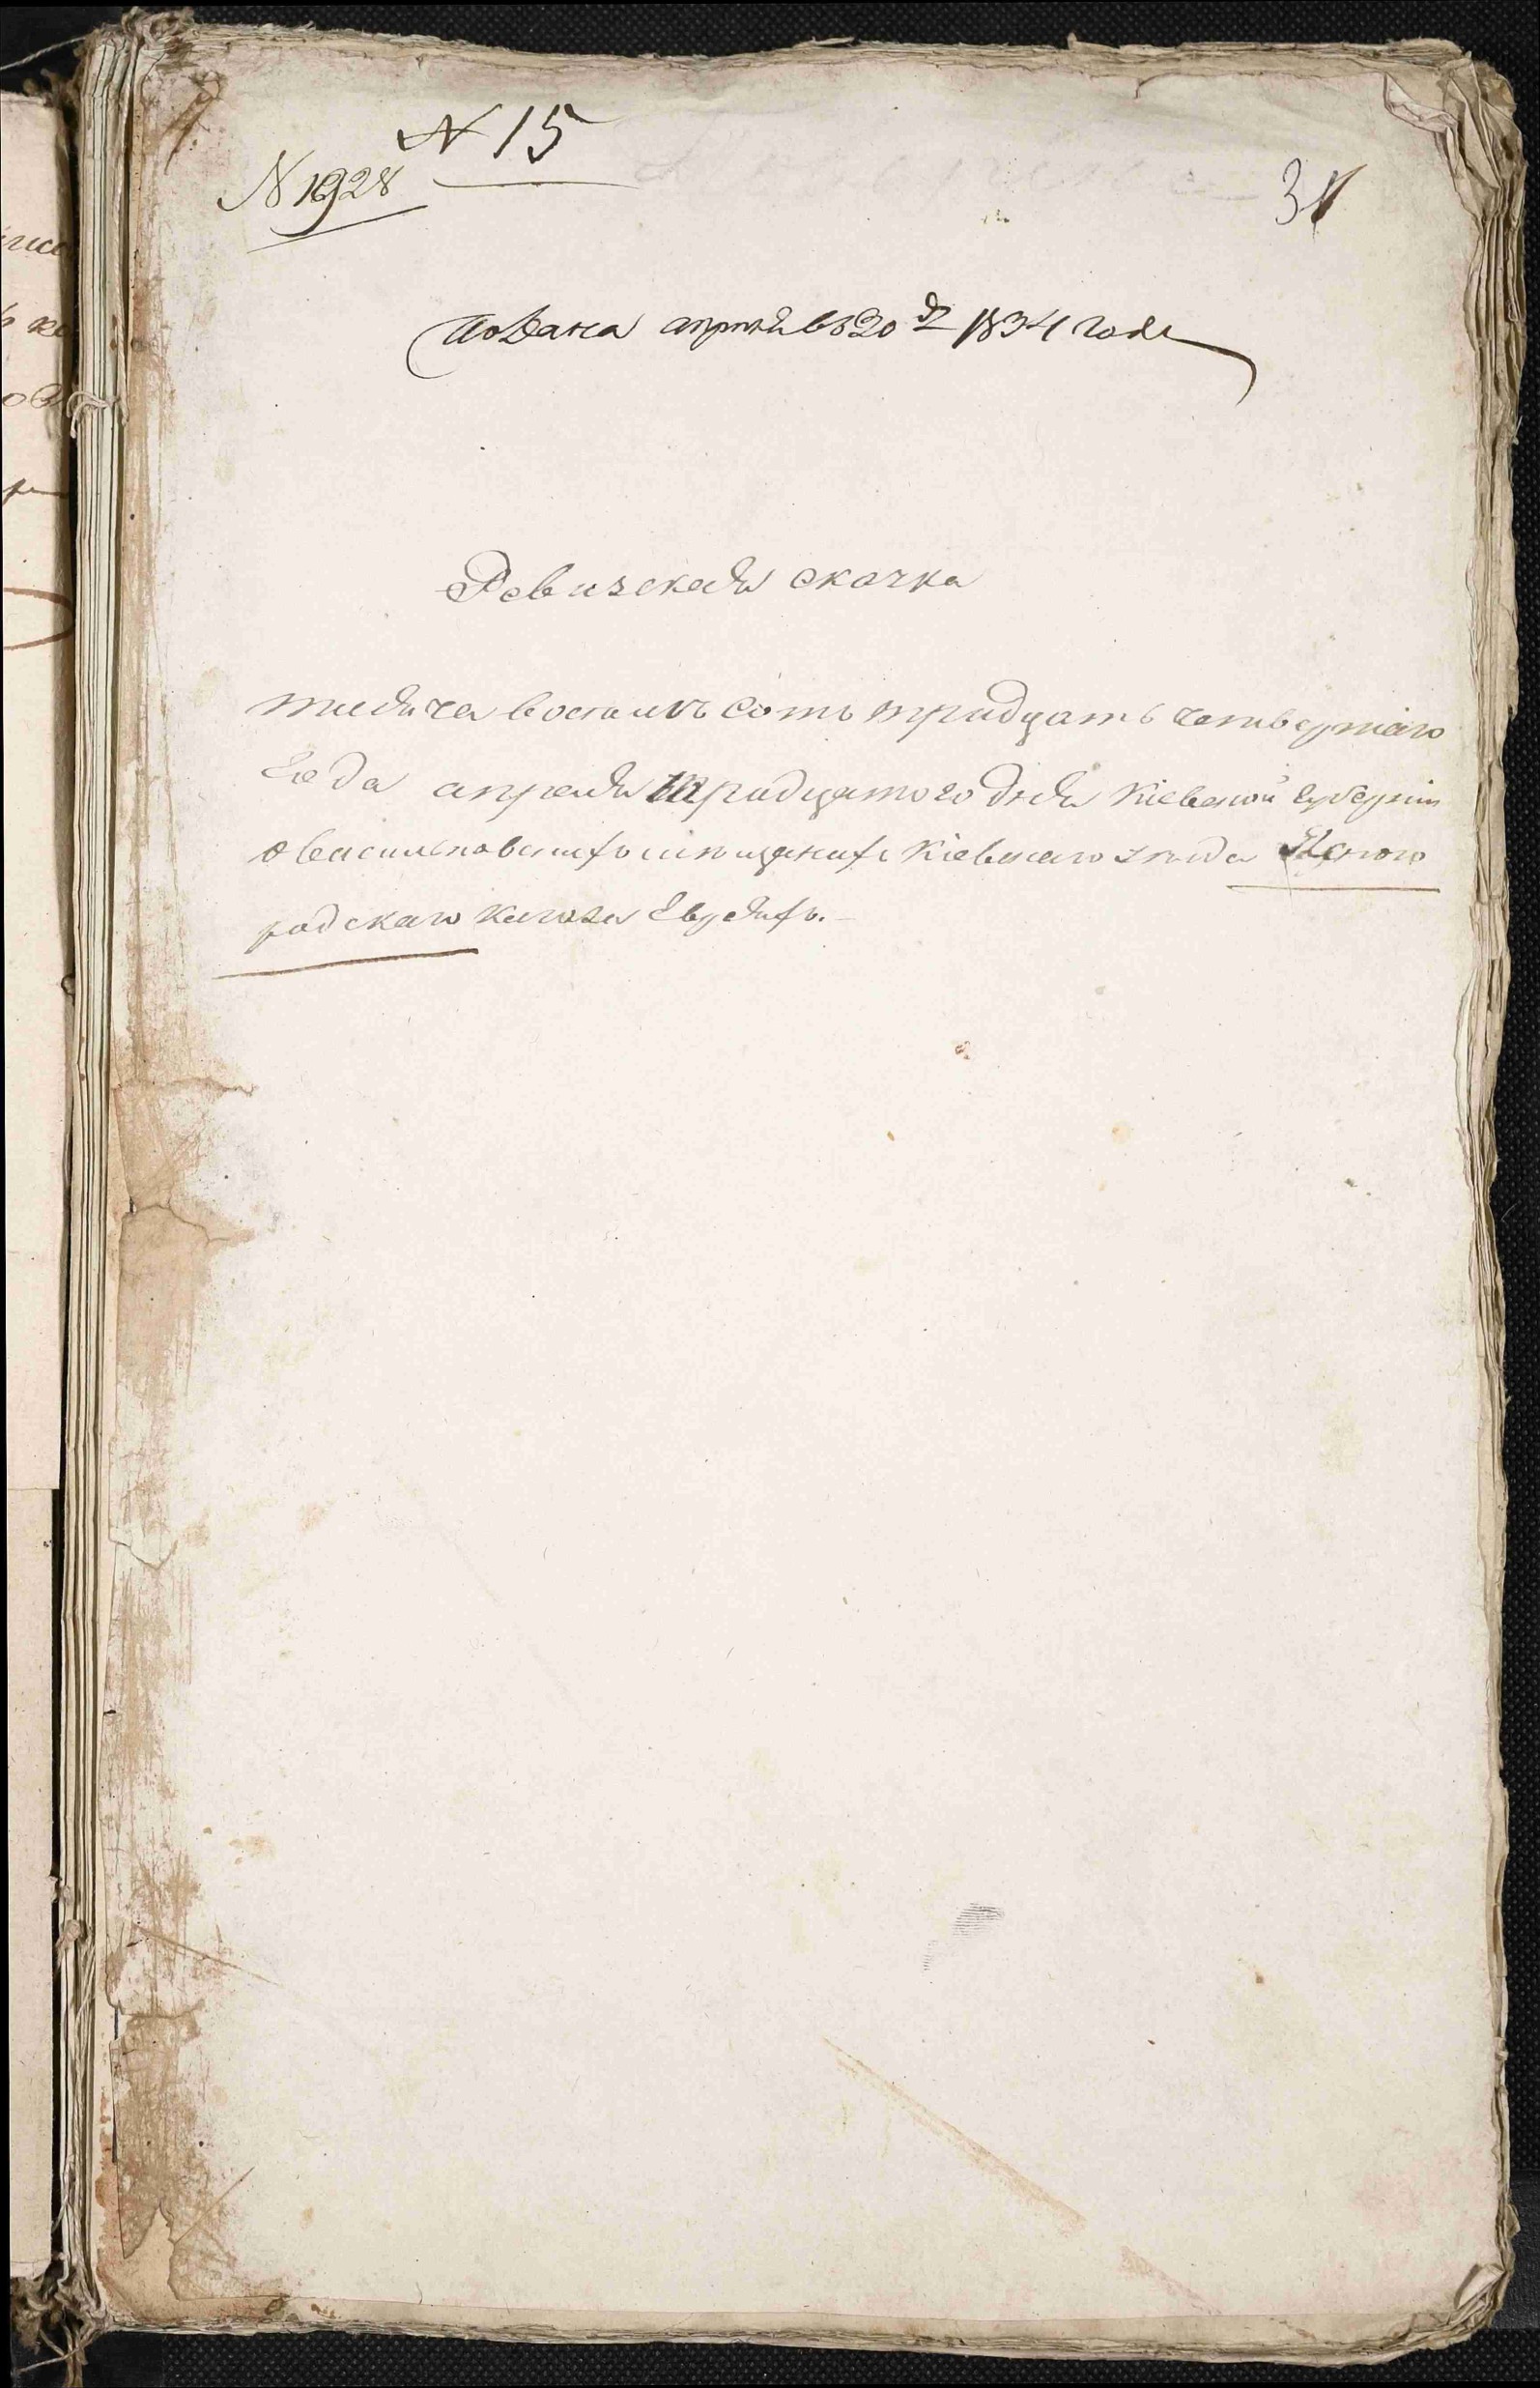 N 15
N 1928
31
Подана апреля въ 20 д 1834 года
Ревизская скаска
тисяча восемъ сотъ тридцать четвертаго
Года апреля тридцатого дня Кіевской Губерніи
о васильковскихъ мещанахъ Кіевскаго уезда Ясного
родскаго кагала Евреяхъ.